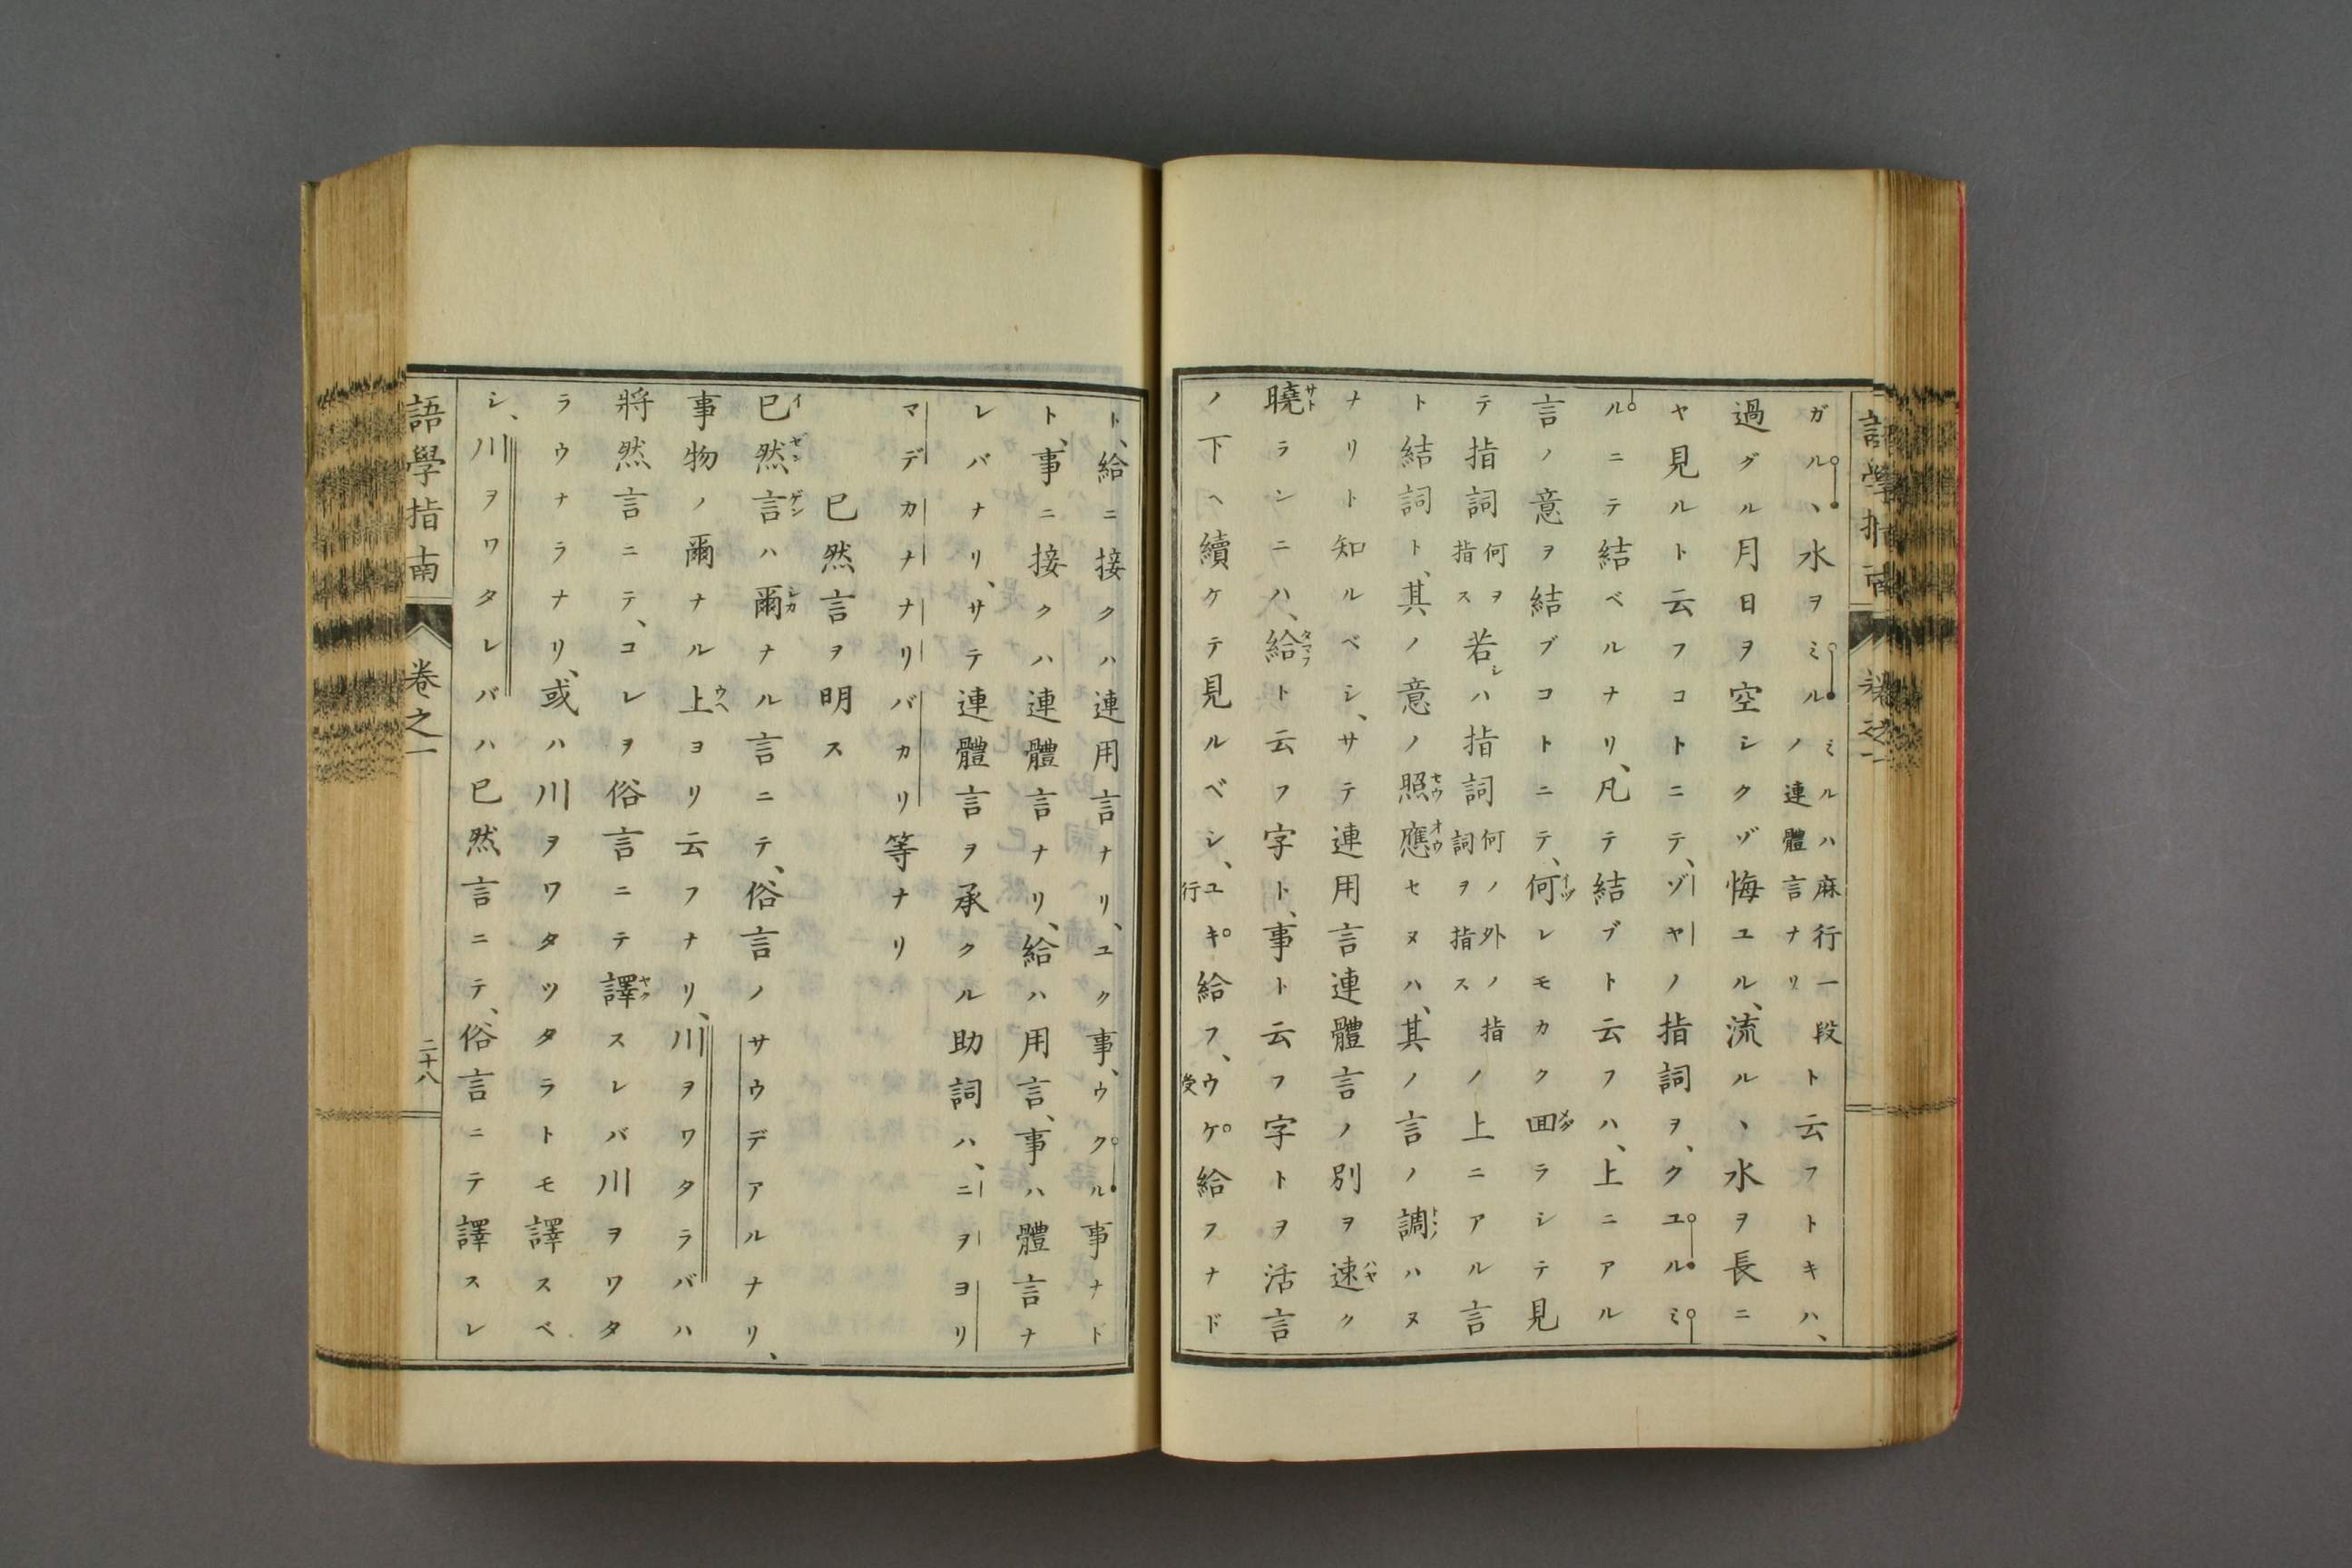 語學指南
卷之一
ガルヽ水ヲミルミルハ麻行一段ノ連體言ナリト云フトキハ、
過グル月日ヲ空シクゾ悔ユル、流ルヽ水ヲ長ニ
ヤ見ルト云フコトニテ、ゾヤノ指詞ヲ、クユルミ
ルニテ結ベルナリ、凡テ結ブト云フハ、上ニアル
言ノ意ヲ結ブコトニテ、何レモカク囬ラシテ見
テ指詞何ヲ指ス若シハ指詞何ノ詞ヲ外ノ指ス指ノ上ニアル言
ト結詞ト、其ノ意ノ照應セヌハ、其ノ言ノ調ハヌ
ナリト知ルベシ、サテ連用言連體言ノ別ヲ速ク
曉ランニハ、給ト云フ字ト、事ト云フ字トヲ活言
ノ下ヘ續ケテ見ルベシ、ユキ行給フ、ウケ受給フナド
ト、給ニ接クハ連用言ナリ、ユク事、ウクル事ナド
ト、事ニ接クハ連體言ナリ、給ハ用言、事ハ體言ナ
レバナリ、サテ連體言ヲ承クル助詞ハ、ニヲヨリ
マデカナナリバカリ等ナリ
已然言ヲ明ス
已然言ハ爾ナル言ニテ、俗言ノサウデアルナリ、
事物ノ爾ナル上ヨリ云フナリ、川ヲワタラバハ
將然言ニテ、コレヲ俗言ニテ譯スレバ川ヲワタ
ラウナラナリ、或ハ川ヲワタツタラトモ譯スベ
シ、川ヲワタレバハ已然言ニテ、俗言ニテ譯スレ
語學指南
卷之一
二十八